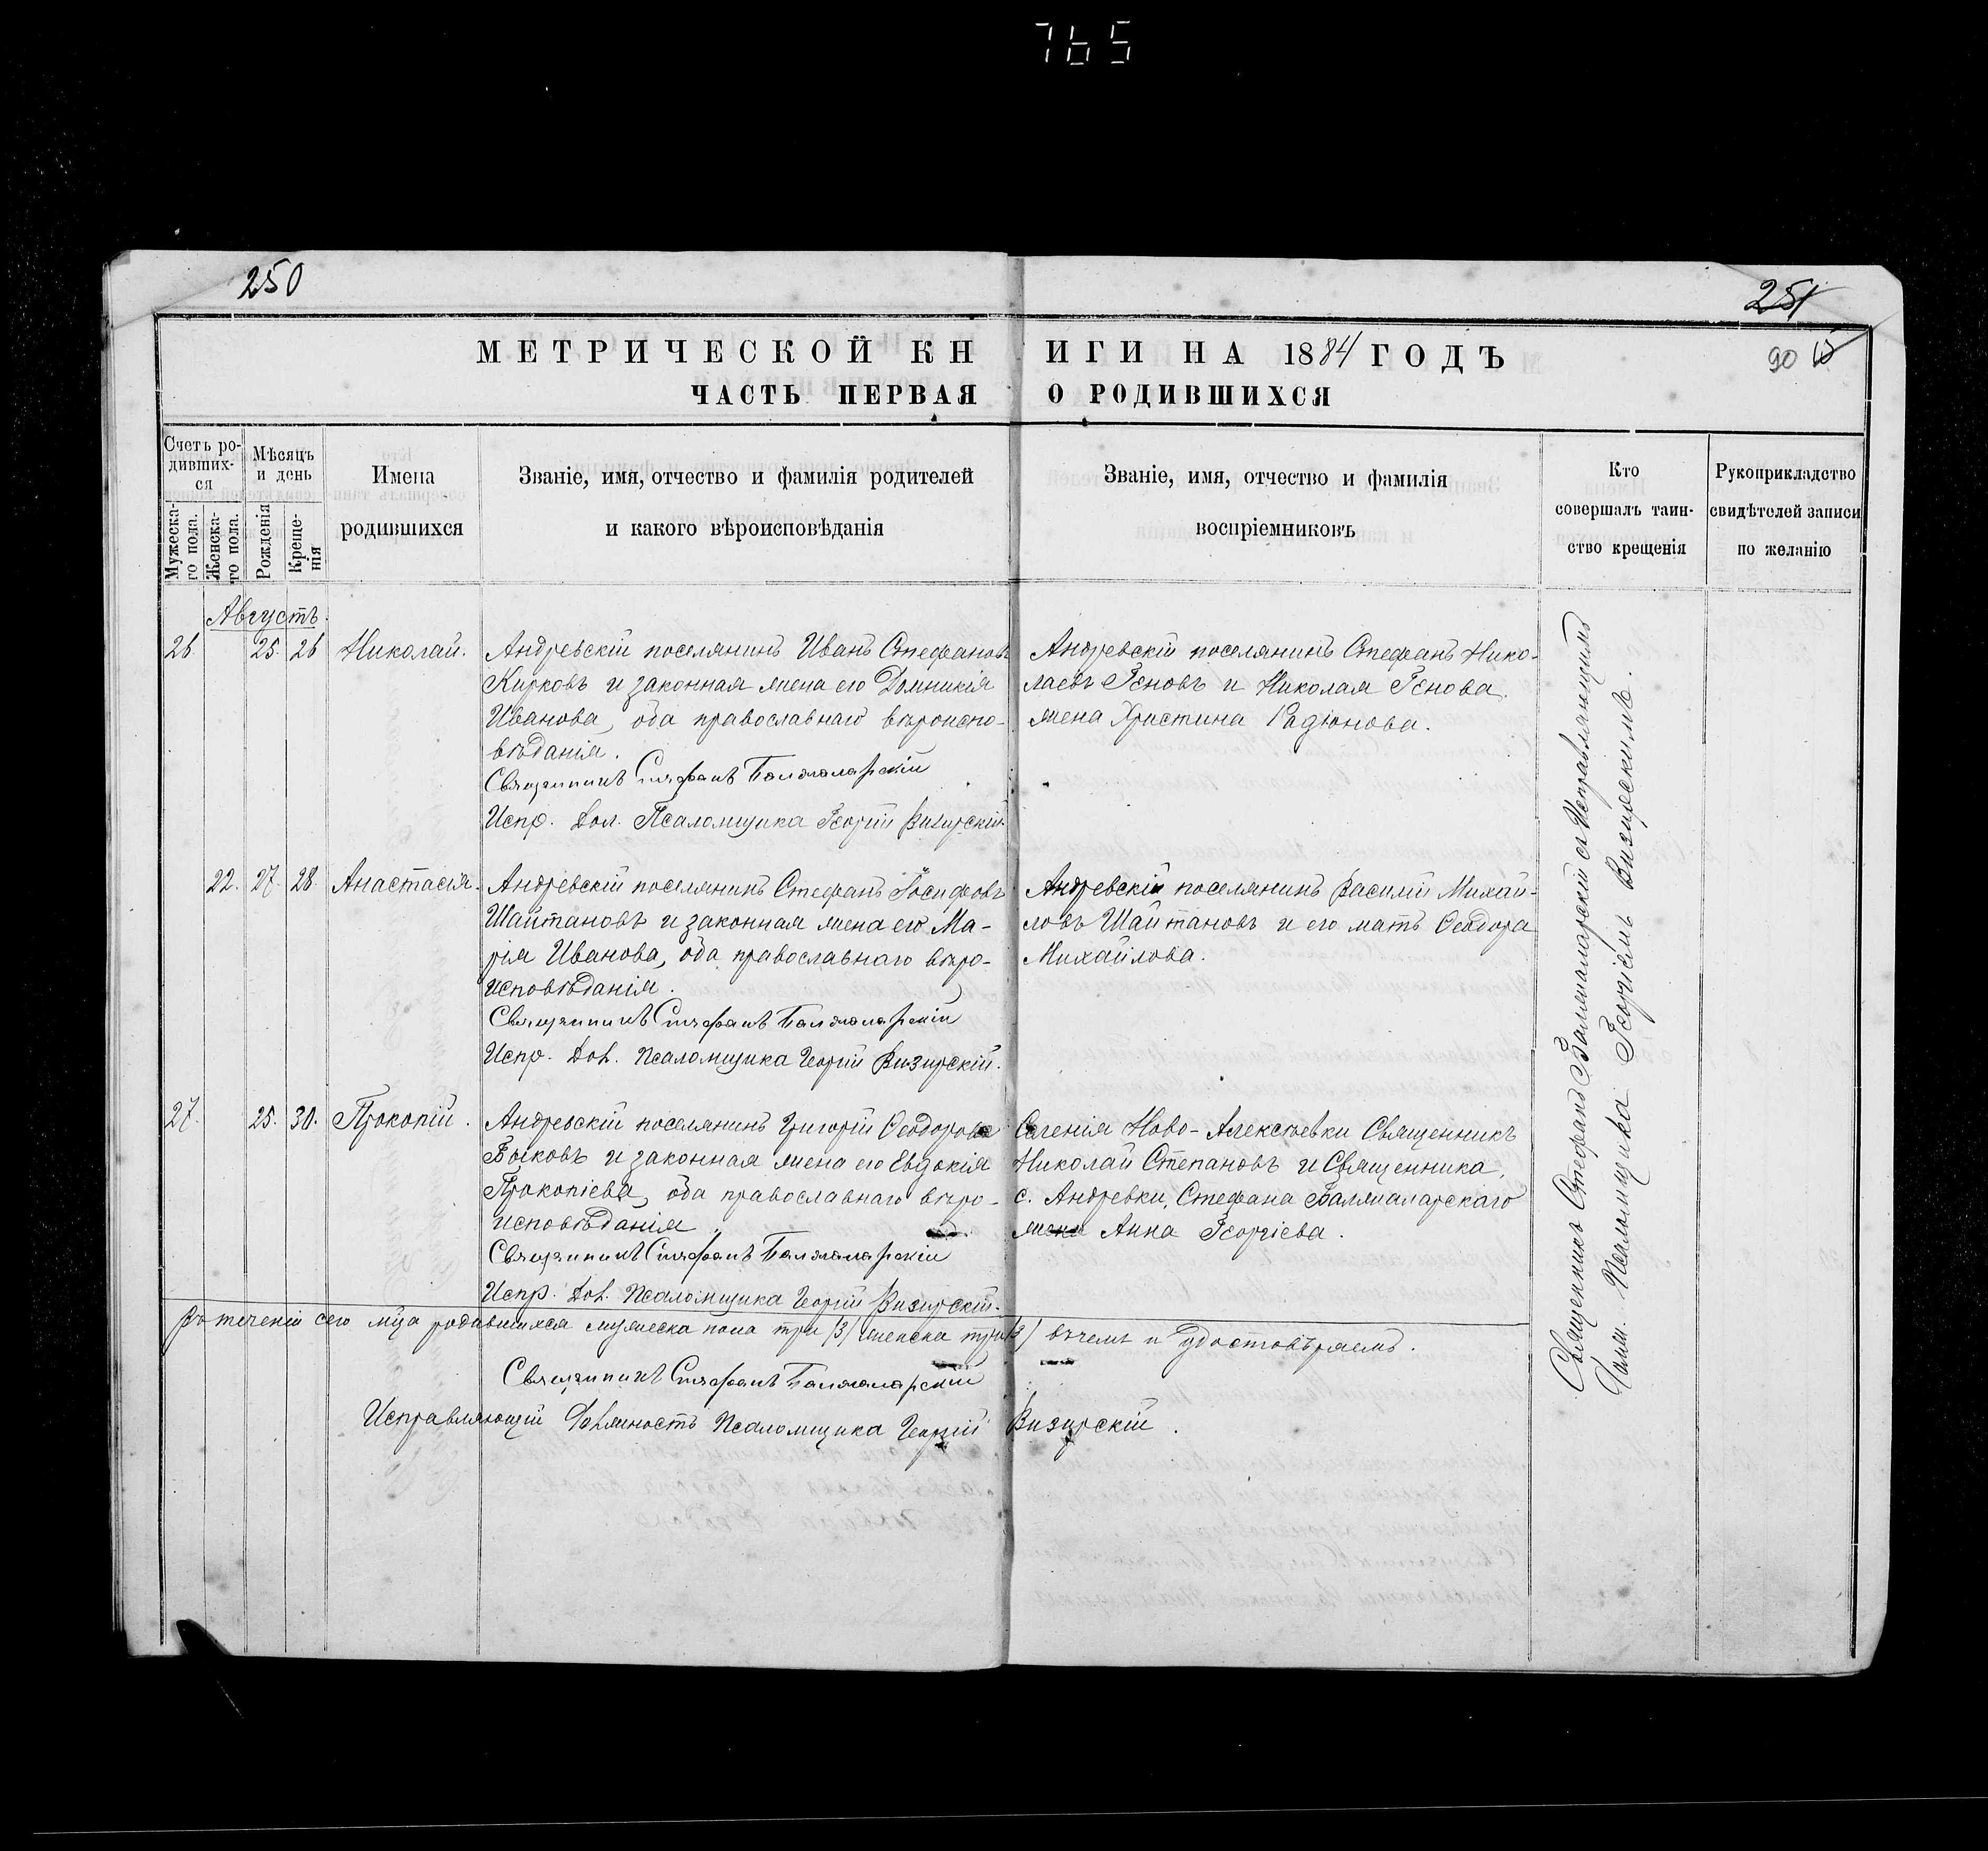 765
250
251
90
МЕТРИЧЕСКОЙ КНИГИ НА 1884 ГОДЪ
ЧАСТЬ ПЕРВАЯ О РОДИВШИХСЯ
Счетъ ро-
дивших-
ся
Мужеска-
го пола.
Женска-
го пола.
Мѣсяцъ
и день
Рожденія
Креще-
нія
Имена
родившихся
Званіе, имя, отчество и фамилія родителей
и какого вѣроисповѣданія
Званіе, имя, отчество и фамилія
воспріемниковъ
Кто
совершалъ таин-
ство крещенія
Рукоприкладство
свидѣтелей записи
по желанію
Августъ.
26. 25. 26 Николай.
Андревскій поселянинъ Иванъ Стефановъ
Кирковъ и законная жена его Домникія
Иванова, оба православнаго вѣроиспо-
вѣданія.
Священникъ Стефанъ Балжаларскій
Испр. Дол. Псаломщика Георгій Визирскій.
Андревскій поселянинъ Стефанъ Нико-
лаевъ Геновъ и Николая Генова
жена Христина Радіонова.
22. 27. 28. Анастасія.
Андревскій поселянинъ Стефанъ Іосифовъ
Шайтановъ и законная жена его Ма-
рія Иванова, оба православнаго вѣро-
исповѣданія.
Священникъ Стефанъ Балжаларскій
Испр. Дол. Псаломщика Георгій Визирскій.
Андревскій поселянинъ Василій Михай-
ловъ Шайтановъ и его мать Ѳеодора
Михайлова.
27. 25. 30. Прокопій.
Андревскій поселянинъ Григорій Ѳеодоровъ
Быковъ и законная жена его Евдокія
Прокопіева, оба православнаго вѣро-
исповѣданія.
Священникъ Стефанъ Балжаларскій
Испр. Дол. Псаломщика Георгій Визирскій.
Селенія Ново-Алексѣевки Священникъ
Николай Степановъ и Священника
с. Андревки, Стефана Балжаларскаго
жена Анна Георгіева.
Въ теченіи сего мца родившихся мужеска пола три /3/ женска три /3/ въ чемъ и удостовѣряемъ.
Священникъ Стефанъ Балжаларскій
Исправляющій Должность Псаломщика Георгій Визирскій.
Священникъ Стефанъ Балжаларскій съ Исправляющимъ
Долж. Псаломщика Георгіемъ Визирскимъ.